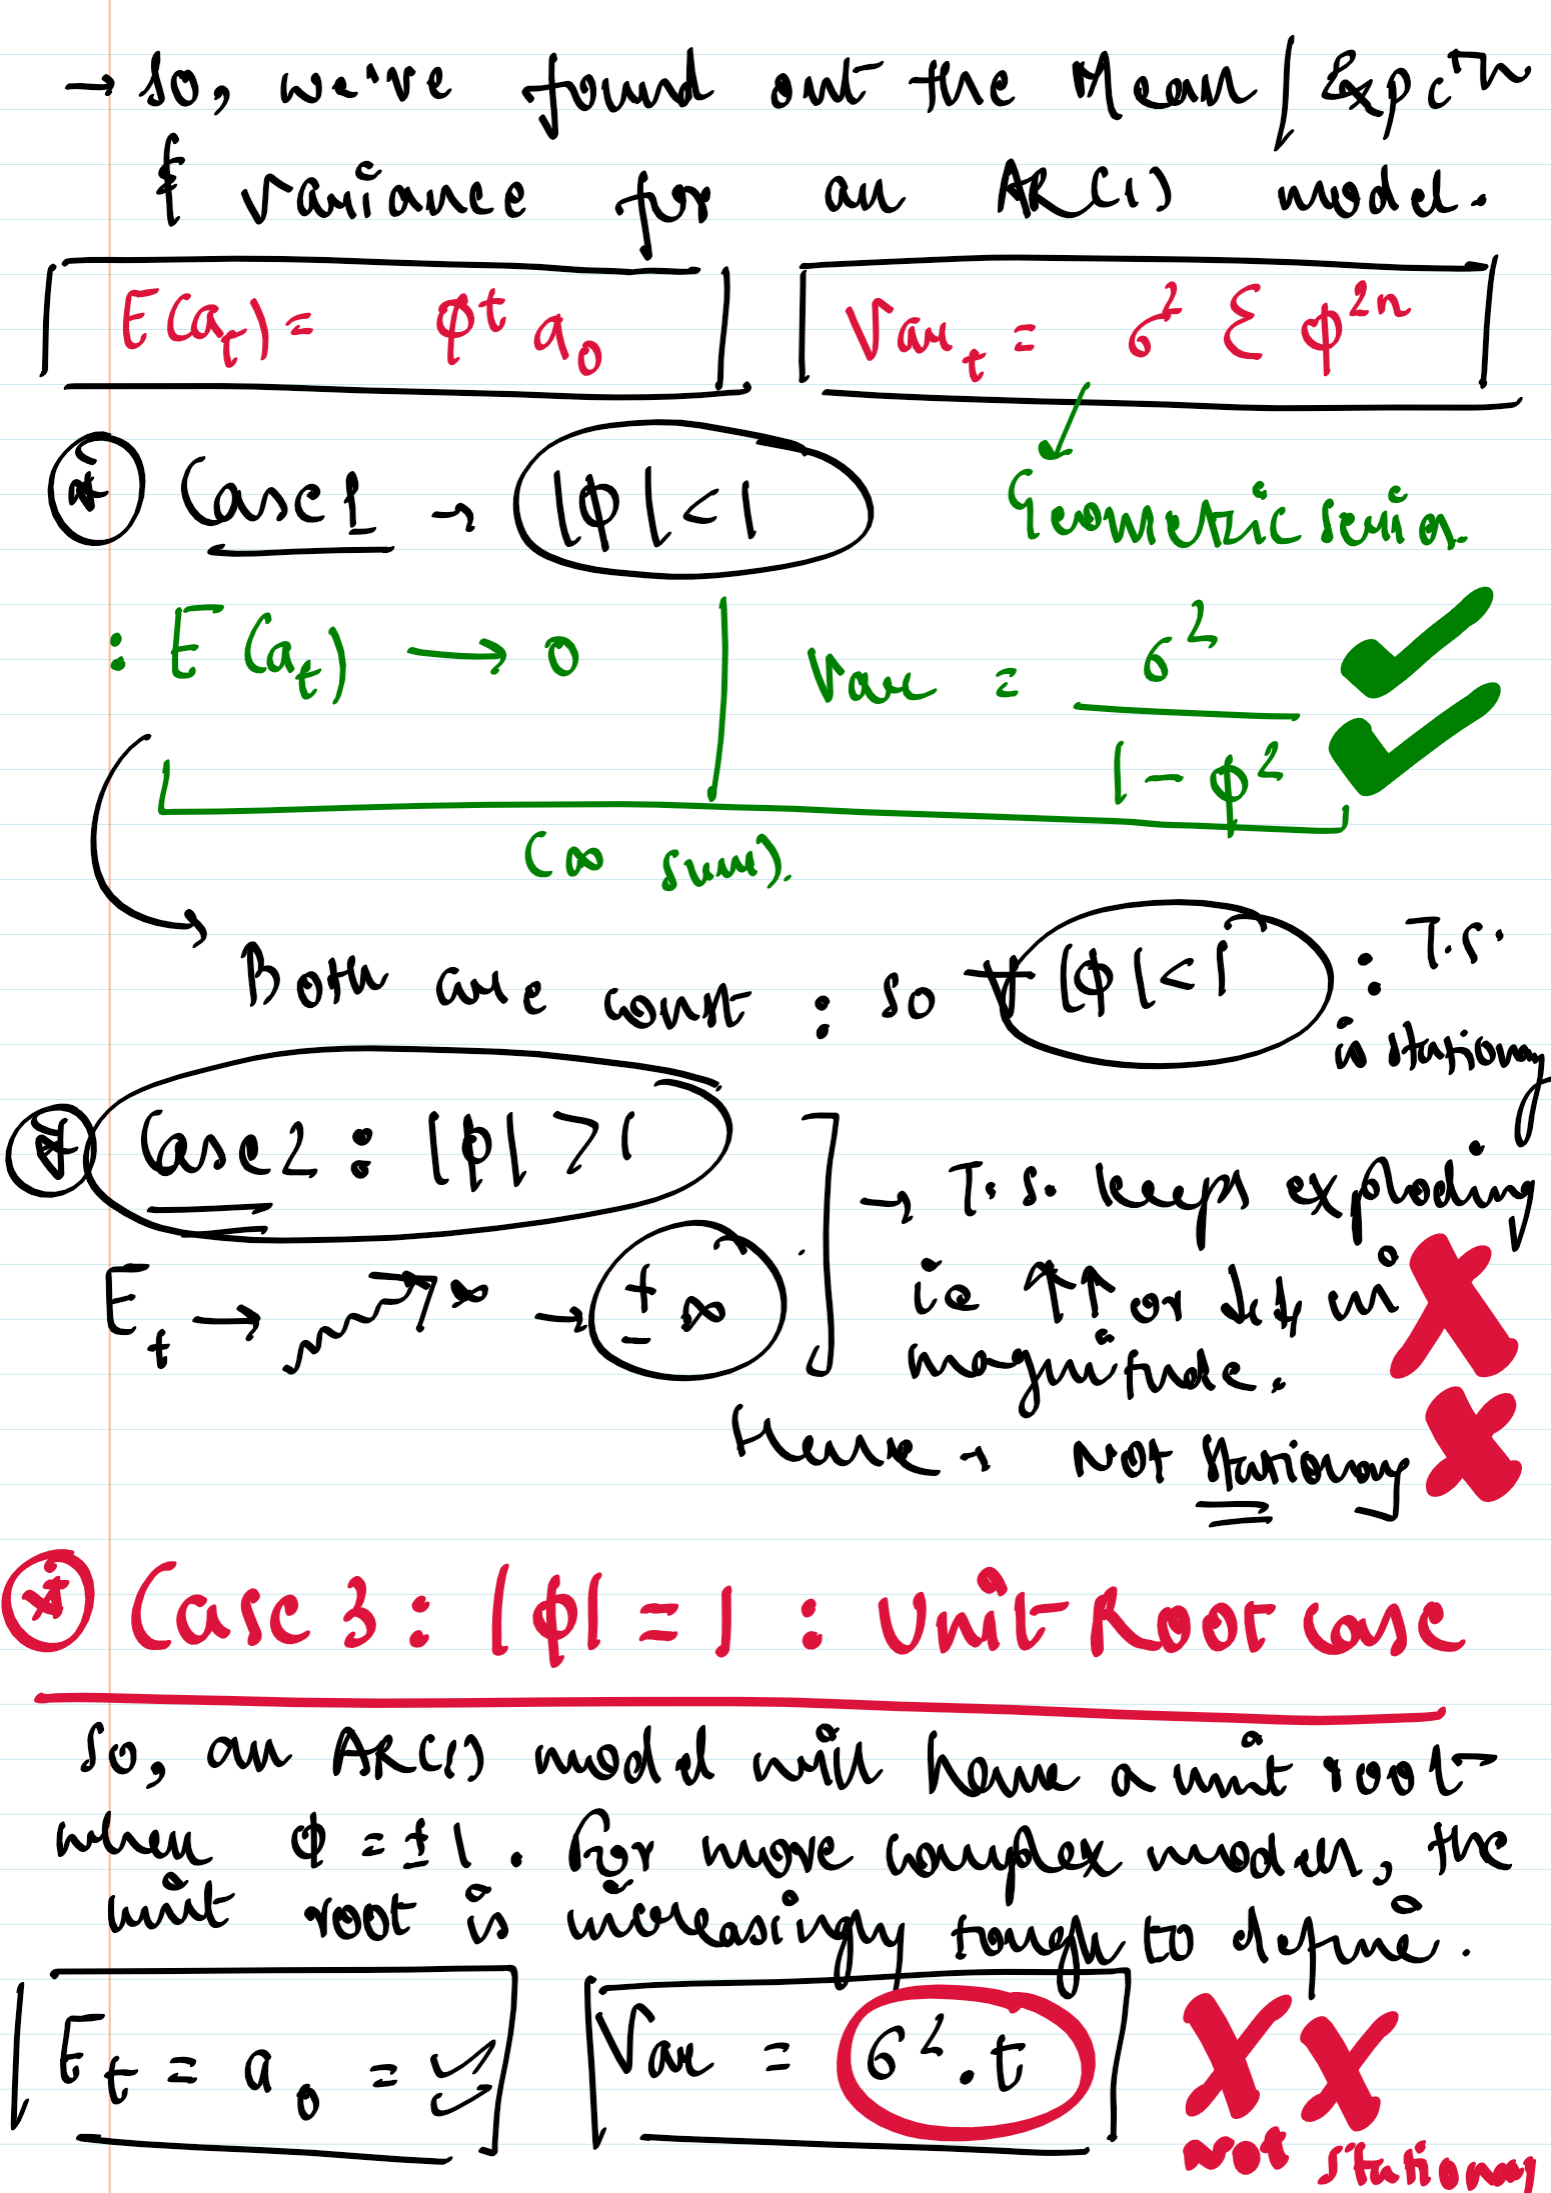 → So, we've found out the Mean / Expcⁿ
& variance for an AR(1) model.
E(aₜ) = φᵗ a₀
Varₜ = σ² Σ φ²ⁿ
Case 1 → |φ| < 1
Geometric series.
: E(aₜ) → 0
Var = σ² / 1 - φ²
(∞ sum).
Both are const : so ∀ |φ| < 1 : T.S.
is stationary
Case 2 : |φ| > 1
→ T.S. keeps exploding
Eₜ → ∞ → ± ∞
ie ↑↑ or ↓↓ in
magnitude.
Hence → Not stationary
Case 3 : |φ| = 1 : Unit Root case
So, an AR(1) model will have a unit root
when φ = ± 1. For more complex models, the
unit root is increasingly tough to define.
Eₜ = a₀ = ✓
Var = σ².t
XX
Not stationary